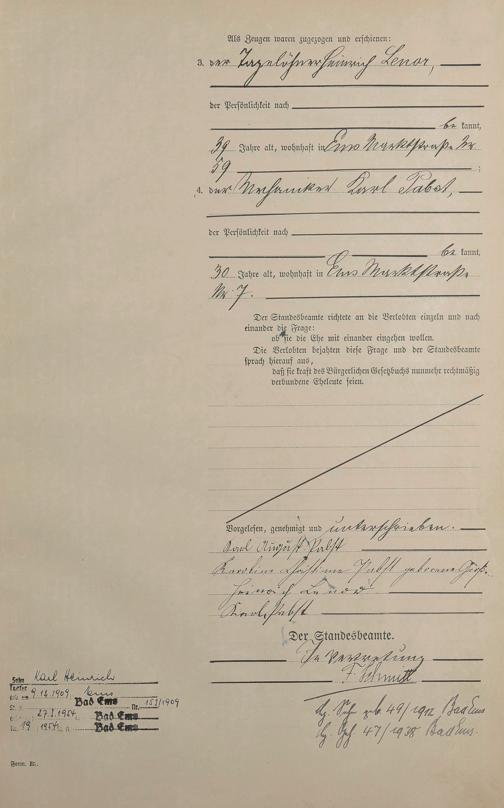 Als Zeugen waren zugezogen und erschienen:
3. der Tagelöhner Heinrich Lenor,
der Persönlichkeit nach
be kannt,
39 Jahre alt, wohnhaft in Ems Marktstraße Nr
59;
4. der Mechaniker Karl Pabst,
der Persönlichkeit nach
be kannt,
30 Jahre alt, wohnhaft in Ems Marktstraße
Nr. 7.
Der Standesbeamte richtete an die Verlobten einzeln und nach
einander die Frage:
ob sie die Ehe mit einander eingehen wollen.
Die Verlobten bejahten diese Frage und der Standesbeamte
sprach hierauf aus,
daß sie kraft des Bürgerlichen Gesetzbuchs nunmehr rechtmäßig
verbundene Eheleute seien.
Vorgelesen, genehmigt und unterschrieben.
Karl August Pabst
Karoline Pabst geborene
Heinrich Lenor
Karl Pabst
Der Standesbeamte.
In Vertretung
F. Schmitt
Sohn Karl Heinrich
Tochter
geb. am 9.12.1909, Ems
Bad Ems Nr. 151/1909
27.3.1954, Bad Ems
Nr. 19 1954 Bad Ems
49/1912 Bad Ems
47/1938 Bad Ems.
Form. Bt.